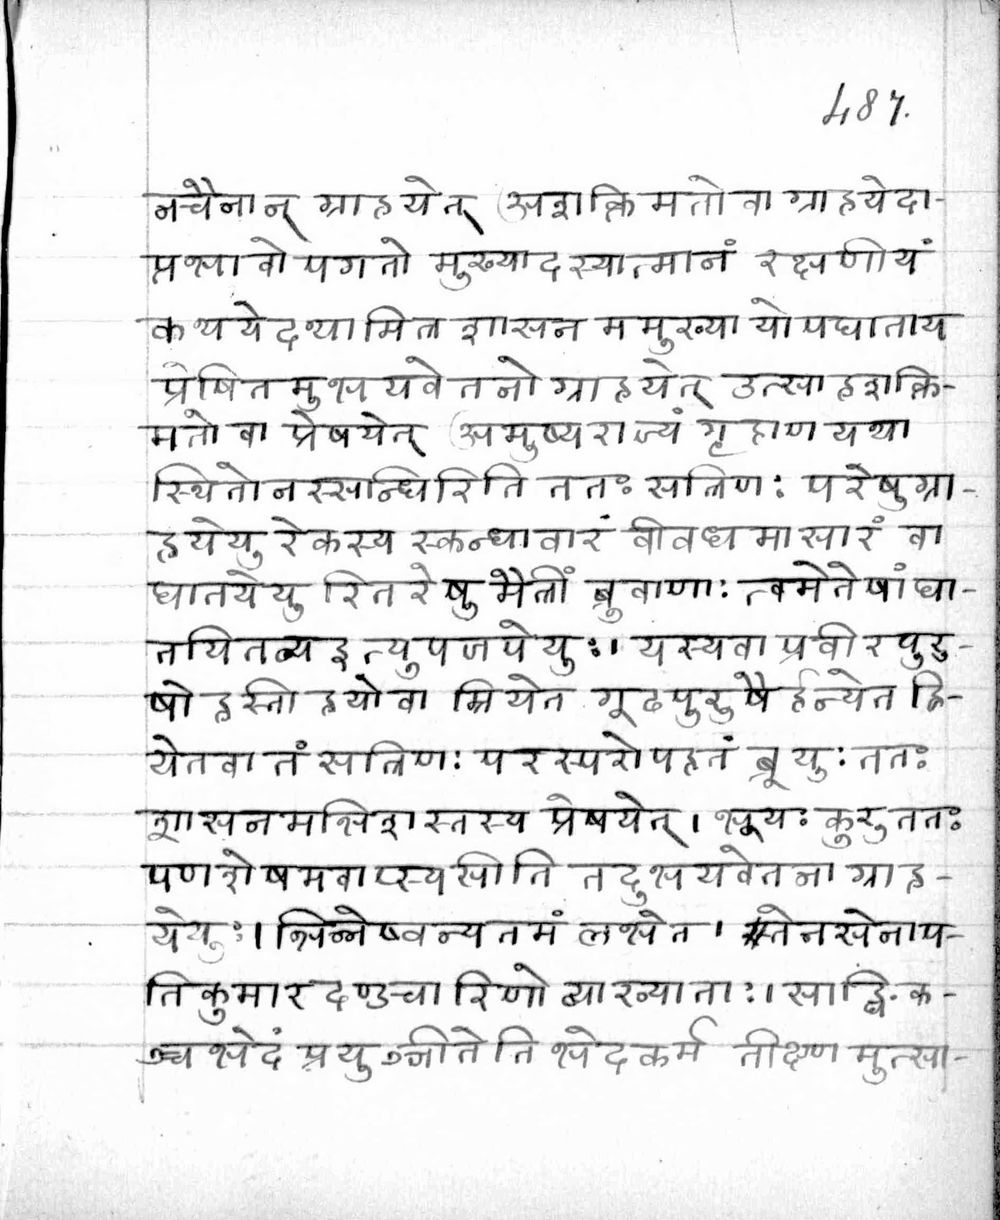 487.
नचैनान् ग्राहयेत् अशक्तिमतो वा ग्राहयेदा-
प्तभावोपगतो मुख्यादस्यात्मानं रक्षणीयं
कथयेदथामित्रशासनममुख्यायोपघाताय
प्रेषितमुभयवेतनो ग्राहयेत् उत्साहशक्ति-
मतो वा प्रेषयेत् अमुष्यराज्यं गृहाण यथा
स्थितो नस्सन्धिरिति ततः सत्रिणः परेषु ग्रा-
हयेयुरेकस्य स्कन्धावारं वीवधमासारं वा
घातयेयुरितरेषु मैत्रीं ब्रुवाणाः त्वमेतेषां घा-
तयितव्य इत्युपजपेयुः। यस्यवा प्रवीरपुरु-
षो हस्ती हयो वा म्रियेत गूढपुरुषैर्हन्येत ह्रि-
येतवा तं सत्रिणः परस्परोपहतं ब्रूयुः ततः
शासनमभिशस्तस्य प्रेषयेत्। भूयः कुरु ततः
पणशेषमवाप्स्यसीति तदुभयवेतना ग्राह-
येयुः। भिन्नेष्वन्यतमं लभेत। तेनसेनाप-
तिकुमारदण्डचारिणो व्याख्याताः। साङ्घिक-
ञ्च भेदं प्रयुञ्जीतेति भेदकर्म तीक्ष्णमुत्सा-